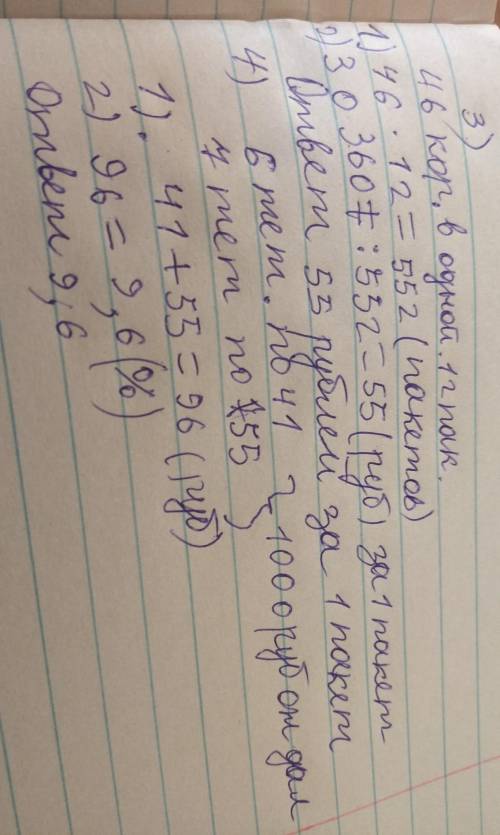 3)
46 кор. в одной. 12 пак.
1) 46 · 12 = 552 (пакетов)
2) 30 360 : 552 = 55 (руб) за 1 пакет
Ответ 55 рублей за 1 пакет
4) 6 тет. по 41 } 1000 руб отдал
7 тет по 55
1). 41 + 55 = 96 (руб)
2) 96 = 9,6 (%)
Ответ 9,6